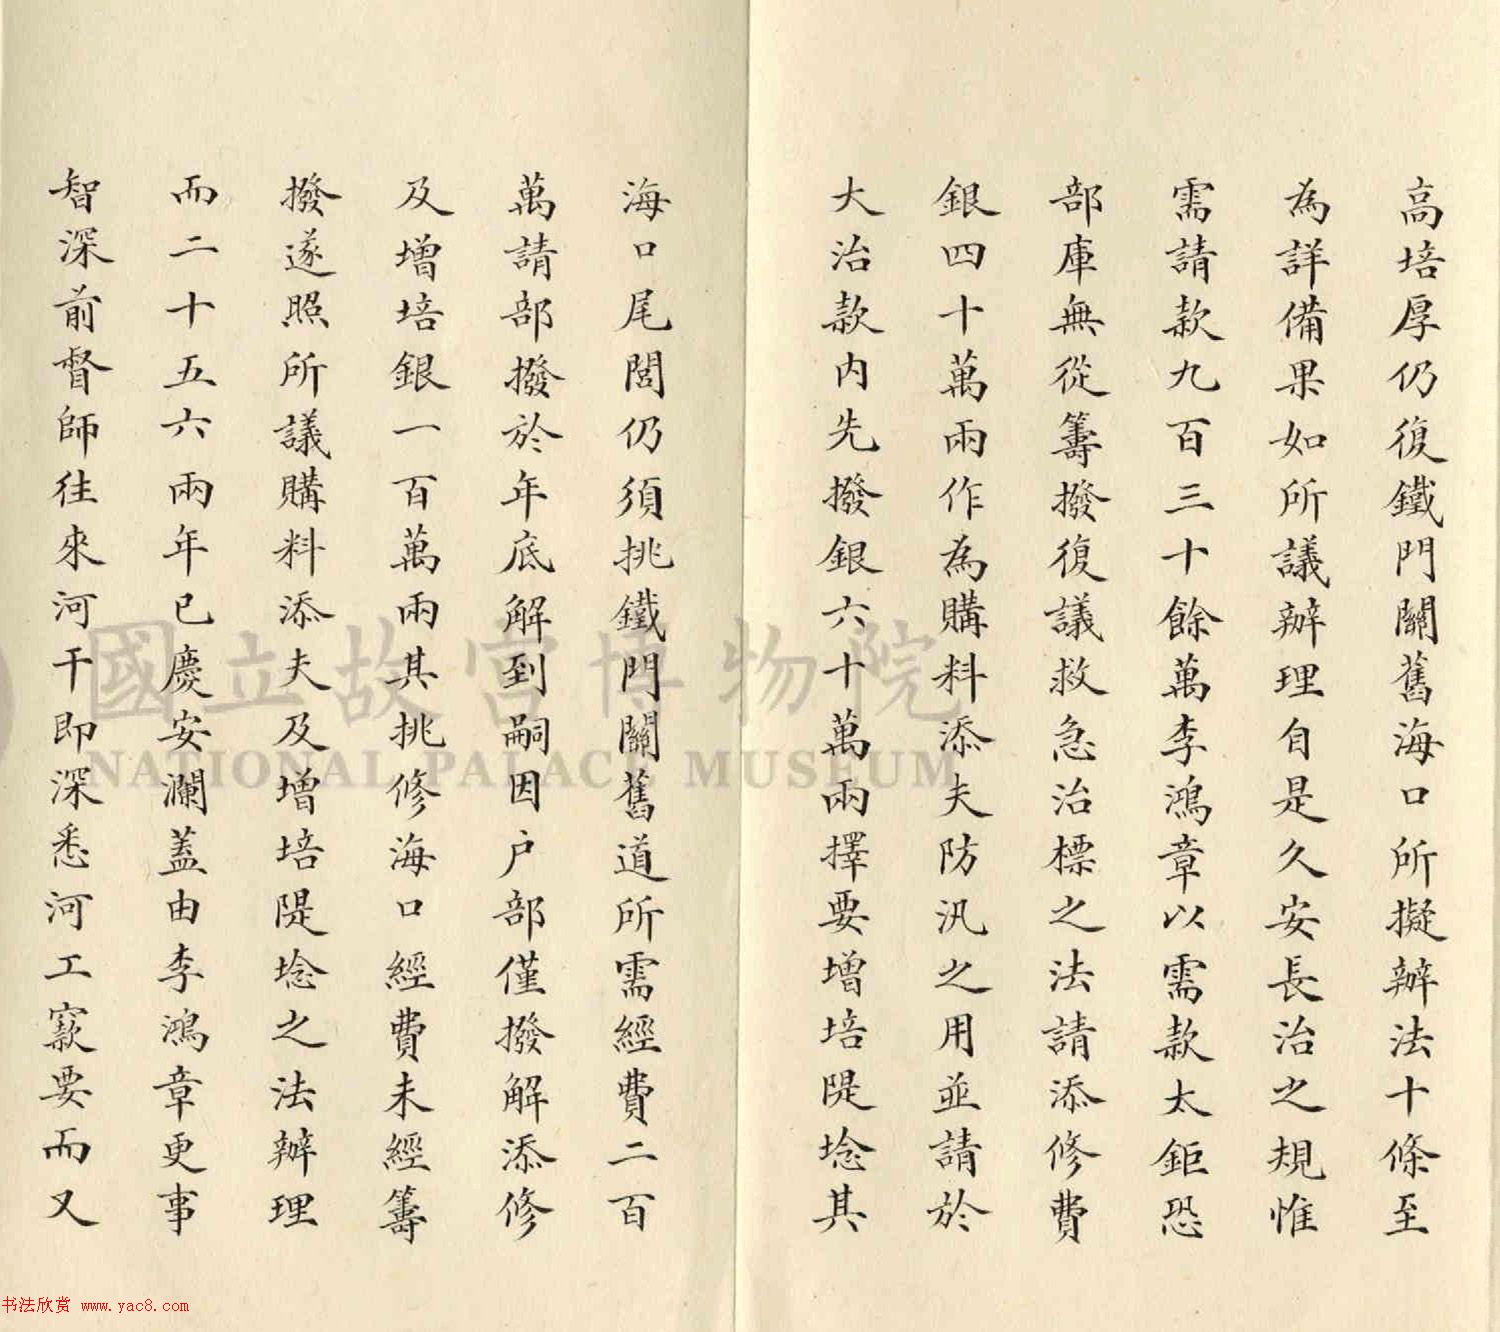 高培厚仍復鐵門關舊海口所擬辦法十條至
為詳備果如所議辦理自是久安長治之規惟
需請款九百三十餘萬李鴻章以需款太鉅恐
部庫無從籌撥復議救急治標之法請添修費
銀四十萬兩作為購料添夫防汛之用並請於
大治款內先撥銀六十萬兩擇要增培隄埝其
海口尾閭仍須挑鐵門關舊道所需經費二百
萬請部撥於年底解到嗣因户部僅撥解添修
及增培銀一百萬兩其挑修海口經費未經籌
撥遂照所議購料添夫及增培隄埝之法辦理
而二十五六兩年已慶安瀾蓋由李鴻章更事
智深前督師往來河干即深悉河工窾要而又
國立故宮博物院
NATIONAL PALACE MUSEUM
书法欣赏 www.yac8.com